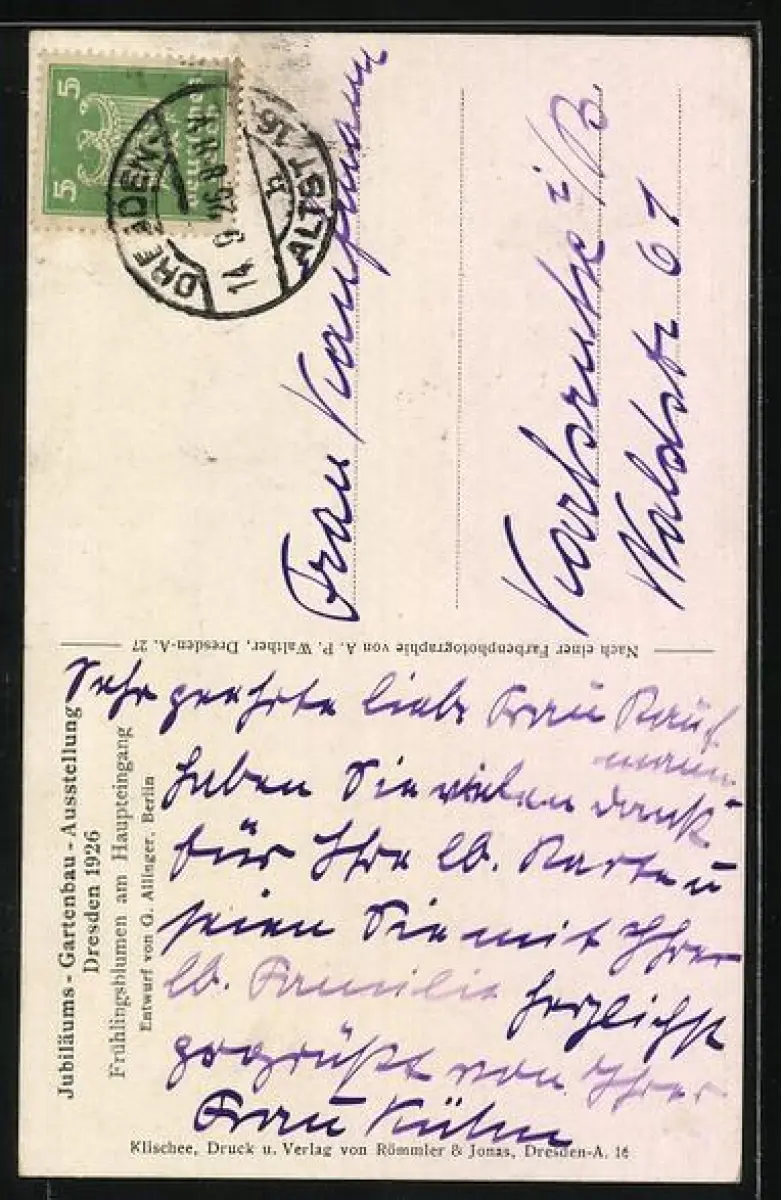 5
5
Deutsches
Reich
DRESDEN-
ALTST. 16
14.9.26. 8-9 N
h
Frau Kaufmann
Karlsruhe i/B.
Waldstr 61
Nach einer Farbenphotographie von A. P. Walther, Dresden-A. 27
Jubiläums-Gartenbau-Ausstellung
Dresden 1926
Frühlingsblumen am Haupteingang
Entwurf von G. Allinger, Berlin
Sehr geehrte liebe Frau Kauf-
mann
haben Sie vielen Dank
für Ihre lb. Karte u
seien Sie mit Ihrer
lb. Familie herzlichst
gegrüßt von Ihrer
Frau Kühn
Klischee, Druck u. Verlag von Römmler & Jonas, Dresden-A. 16